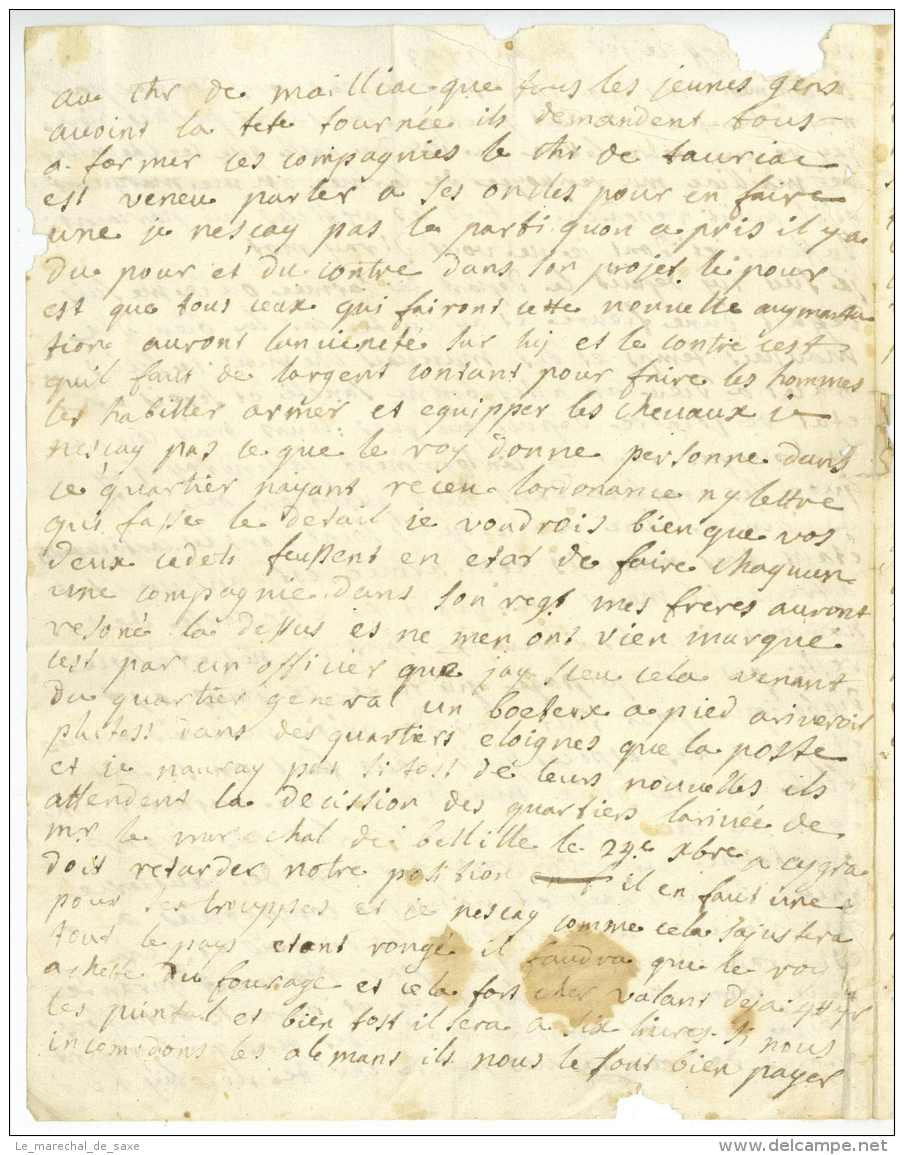 au chr de mailliac que tous les jeunes gens
avoint la tete tournée ils demandent tous
a former ces compagnies le chr de tauriac
est veneu parler a ses oncles pour en faire
une je nesçay pas le parti quon a pris il y a
du pour et du contre dans son projet le pour
est que tous ceux qui fairont cette nouvelle augmanta
tion auront lancieneté sur luy et le contre cest
quil faut de largent contant pour faire les hommes
les habiller armer et equipper les chevaux je
nescay pas ce que le roy donne personne dans
ce quartier nayant receu lordonance ny lettre
qui fasse le detail je voudrois bien que vos
deux cadets feussent en etat de faire chaqun
une compagnie dans son regt mes freres auront
resoné la dessus et ne men ont rien marqué
cest par un officier que jay sceu cela venant
du quartier general un boeteux a pied ariveroit
plutost dans des quartiers eloignes que la poste
et je nauray pas si tost de leurs nouvelles ils
attendent la decission des quartiers larivée de
mr le marechal de bellille le 29e xbre a
doit retarder notre position il en faut une
pour ses trouppes et je nescay comme cela sajustera
tout le pays etant rongé il faudra que le roy
achette du fourage et cela fort cher valant deja
les quintal et bien tost il sera a six livres si nous
incomodons les alemans ils nous le font bien payer
Le_marechal_de_saxe
www.delcampe.net